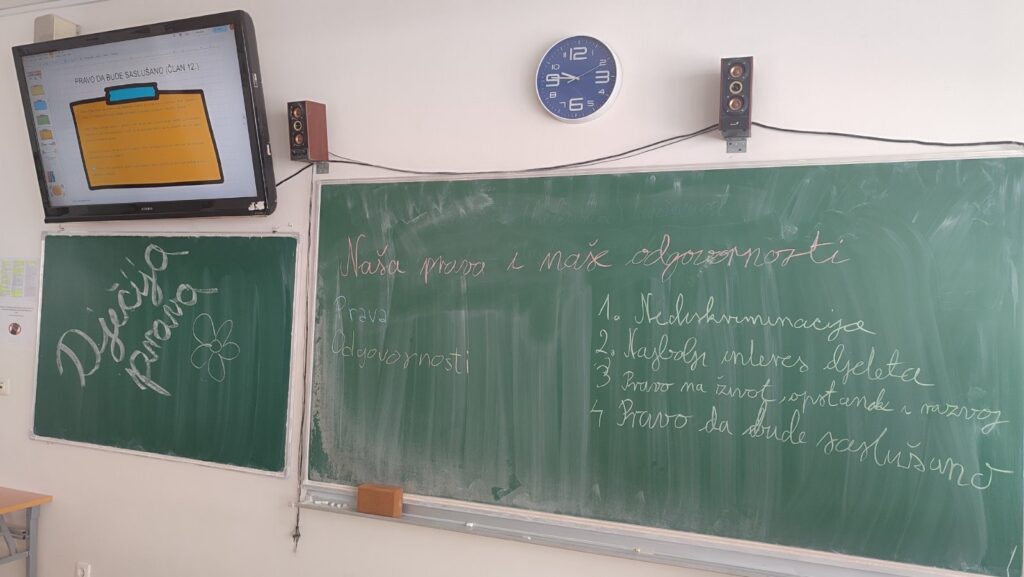 PRAVO DA BUDE SASLUŠANO (ČLAN 12.)
Dječija
prava
Naša prava i naše odgovornosti
Prava
Odgovornosti
1. Nediskriminacija
2. Najbolji interes djeteta
3 Pravo na život, opstanak i razvoj
4 Pravo da bude saslušano
12
2
3
5
6
8
9
10